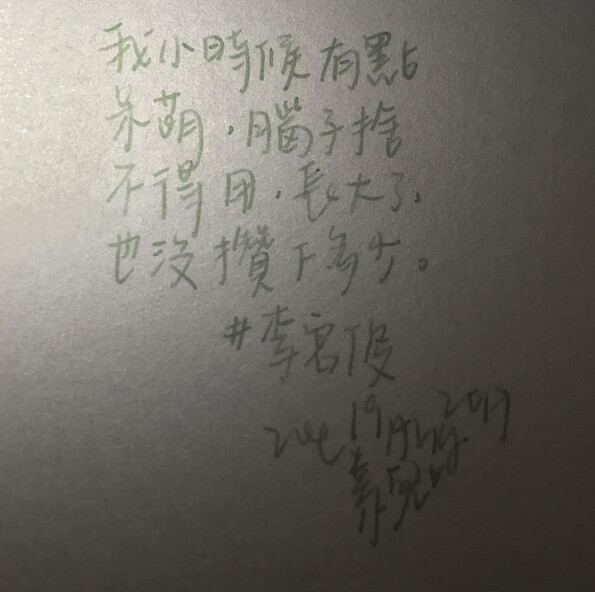 我小時候有點
呆萌，腦子捨
不得用，長大了，
也沒攢下多少。
#李宮俊
19 Aug. 2017